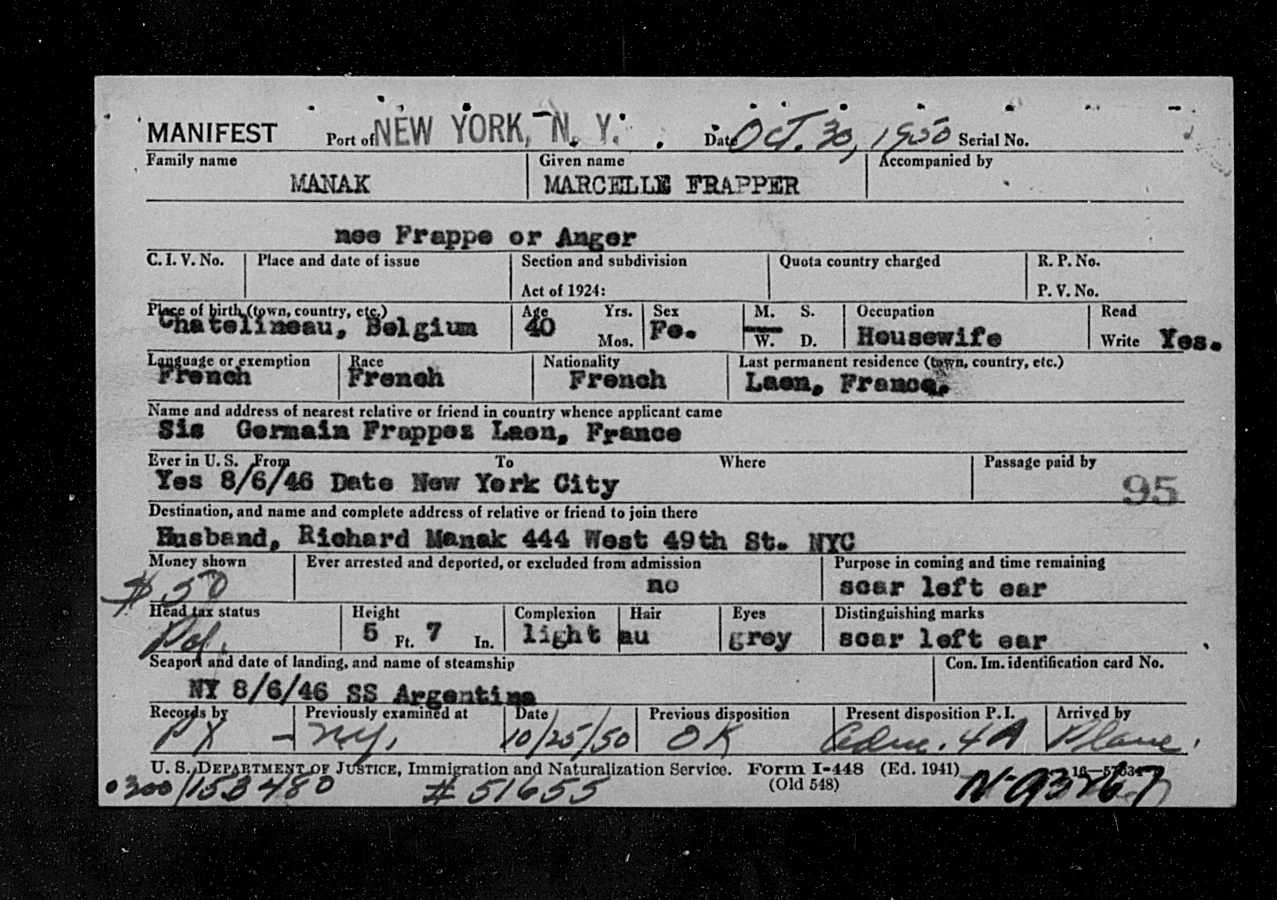 MANIFEST Port of NEW YORK, N. Y. Date Oct. 30, 1950 Serial No.
Family name Given name Accompanied by
MANAK MARCELLE FRAPPER
nee Frappe or Anger
C. I. V. No. Place and date of issue Section and subdivision Quota country charged R. P. No.
Act of 1924: P. V. No.
Place of birth (town, country, etc.) Age Yrs. Sex M. S. Occupation Read
Chatelineau, Belgium 40 Mos. Fe. W. D. Housewife Write Yes.
Language or exemption Race Nationality Last permanent residence (town, country, etc.)
French French French Laon, France.
Name and address of nearest relative or friend in country whence applicant came
Sis Germain Frappez Laon, France
Ever in U. S. From To Where Passage paid by
Yes 8/6/46 Date New York City 95
Destination, and name and complete address of relative or friend to join there
Husband, Richard Manak 444 West 49th St. NYC
Money shown Ever arrested and deported, or excluded from admission Purpose in coming and time remaining
$50 no scar left ear
Head tax status Height Complexion Hair Eyes Distinguishing marks
5 Ft. 7 In. light au grey scar left ear
Seaport and date of landing, and name of steamship Con. Im. identification card No.
NY 8/6/46 SS Argentina
Records by Previously examined at Date Previous disposition Present disposition P. I. Arrived by
NY. 10/25/50 OK Adm. 4A Plane.
U. S. DEPARTMENT OF JUSTICE, Immigration and Naturalization Service. Form I-448 (Ed. 1941)
(Old 548)
0300/153480 #51655